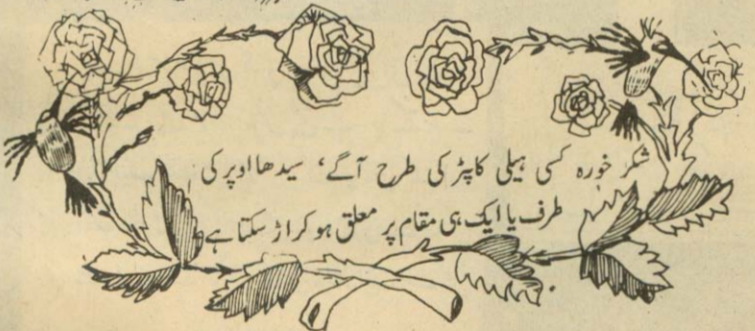 شکر خورہ کسی ہیلی کاپٹر کی طرح آگے، سیدھا اوپر کی
طرف یا ایک ہی مقام پر معلق ہو کر اڑ سکتا ہے